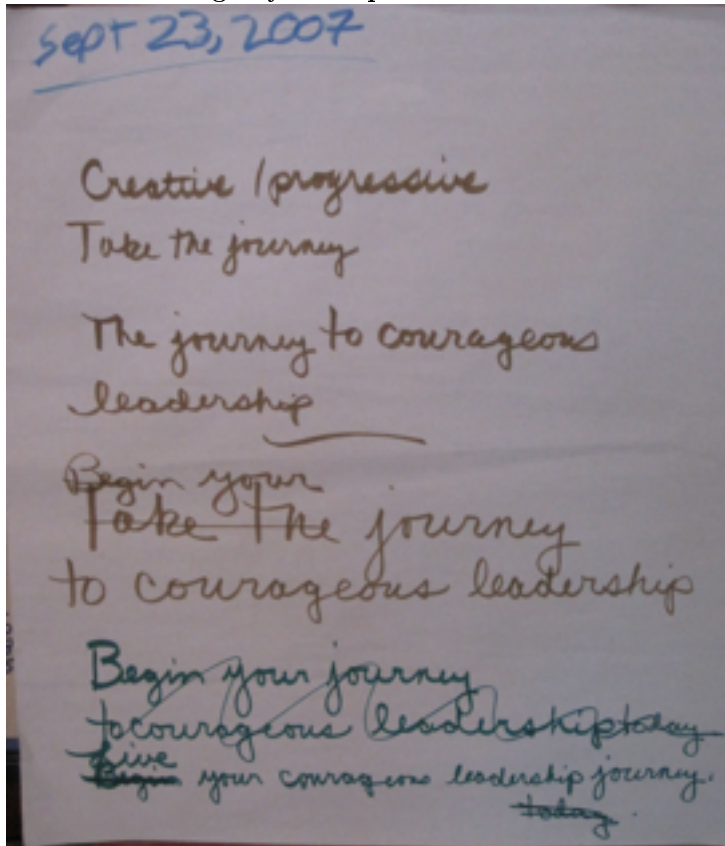 Sept 23, 2007
Creative / progressive
Take the journey
The journey to courageous
leadership
Begin your
Take the journey
to courageous leadership
Begin your journey
to courageous leadership today
Live
Begin your courageous leadership journey.
today.